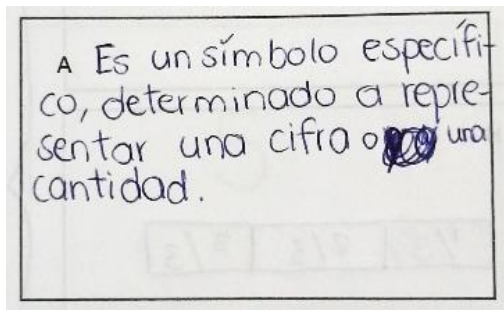 A Es un símbolo específi-
co, determinado a repre-
sentar una cifra o una
cantidad.